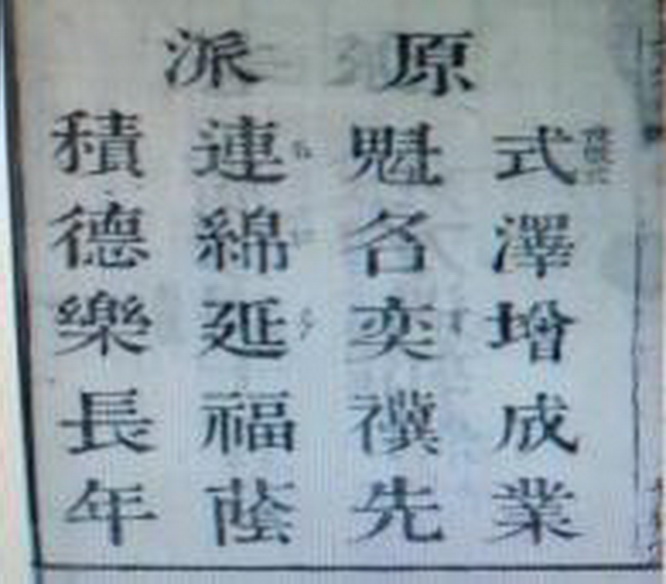 原派
式澤增成業
魁名奕禩先
連綿延福蔭
積德樂長年